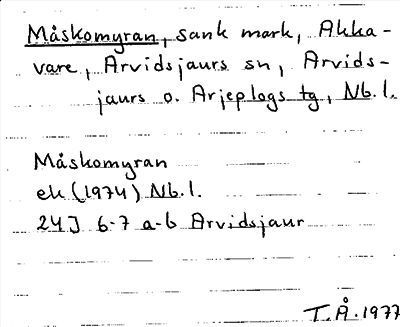 Måskomyran, sank mark, Akka-
vare, Arvidsjaurs sn, Arvids-
jaurs o. Arjeplogs tg, Nb.l.
Måskomyran
ek (1974) Nb.l.
24J 6-7 a-b Arvidsjaur
T.Å. 1977